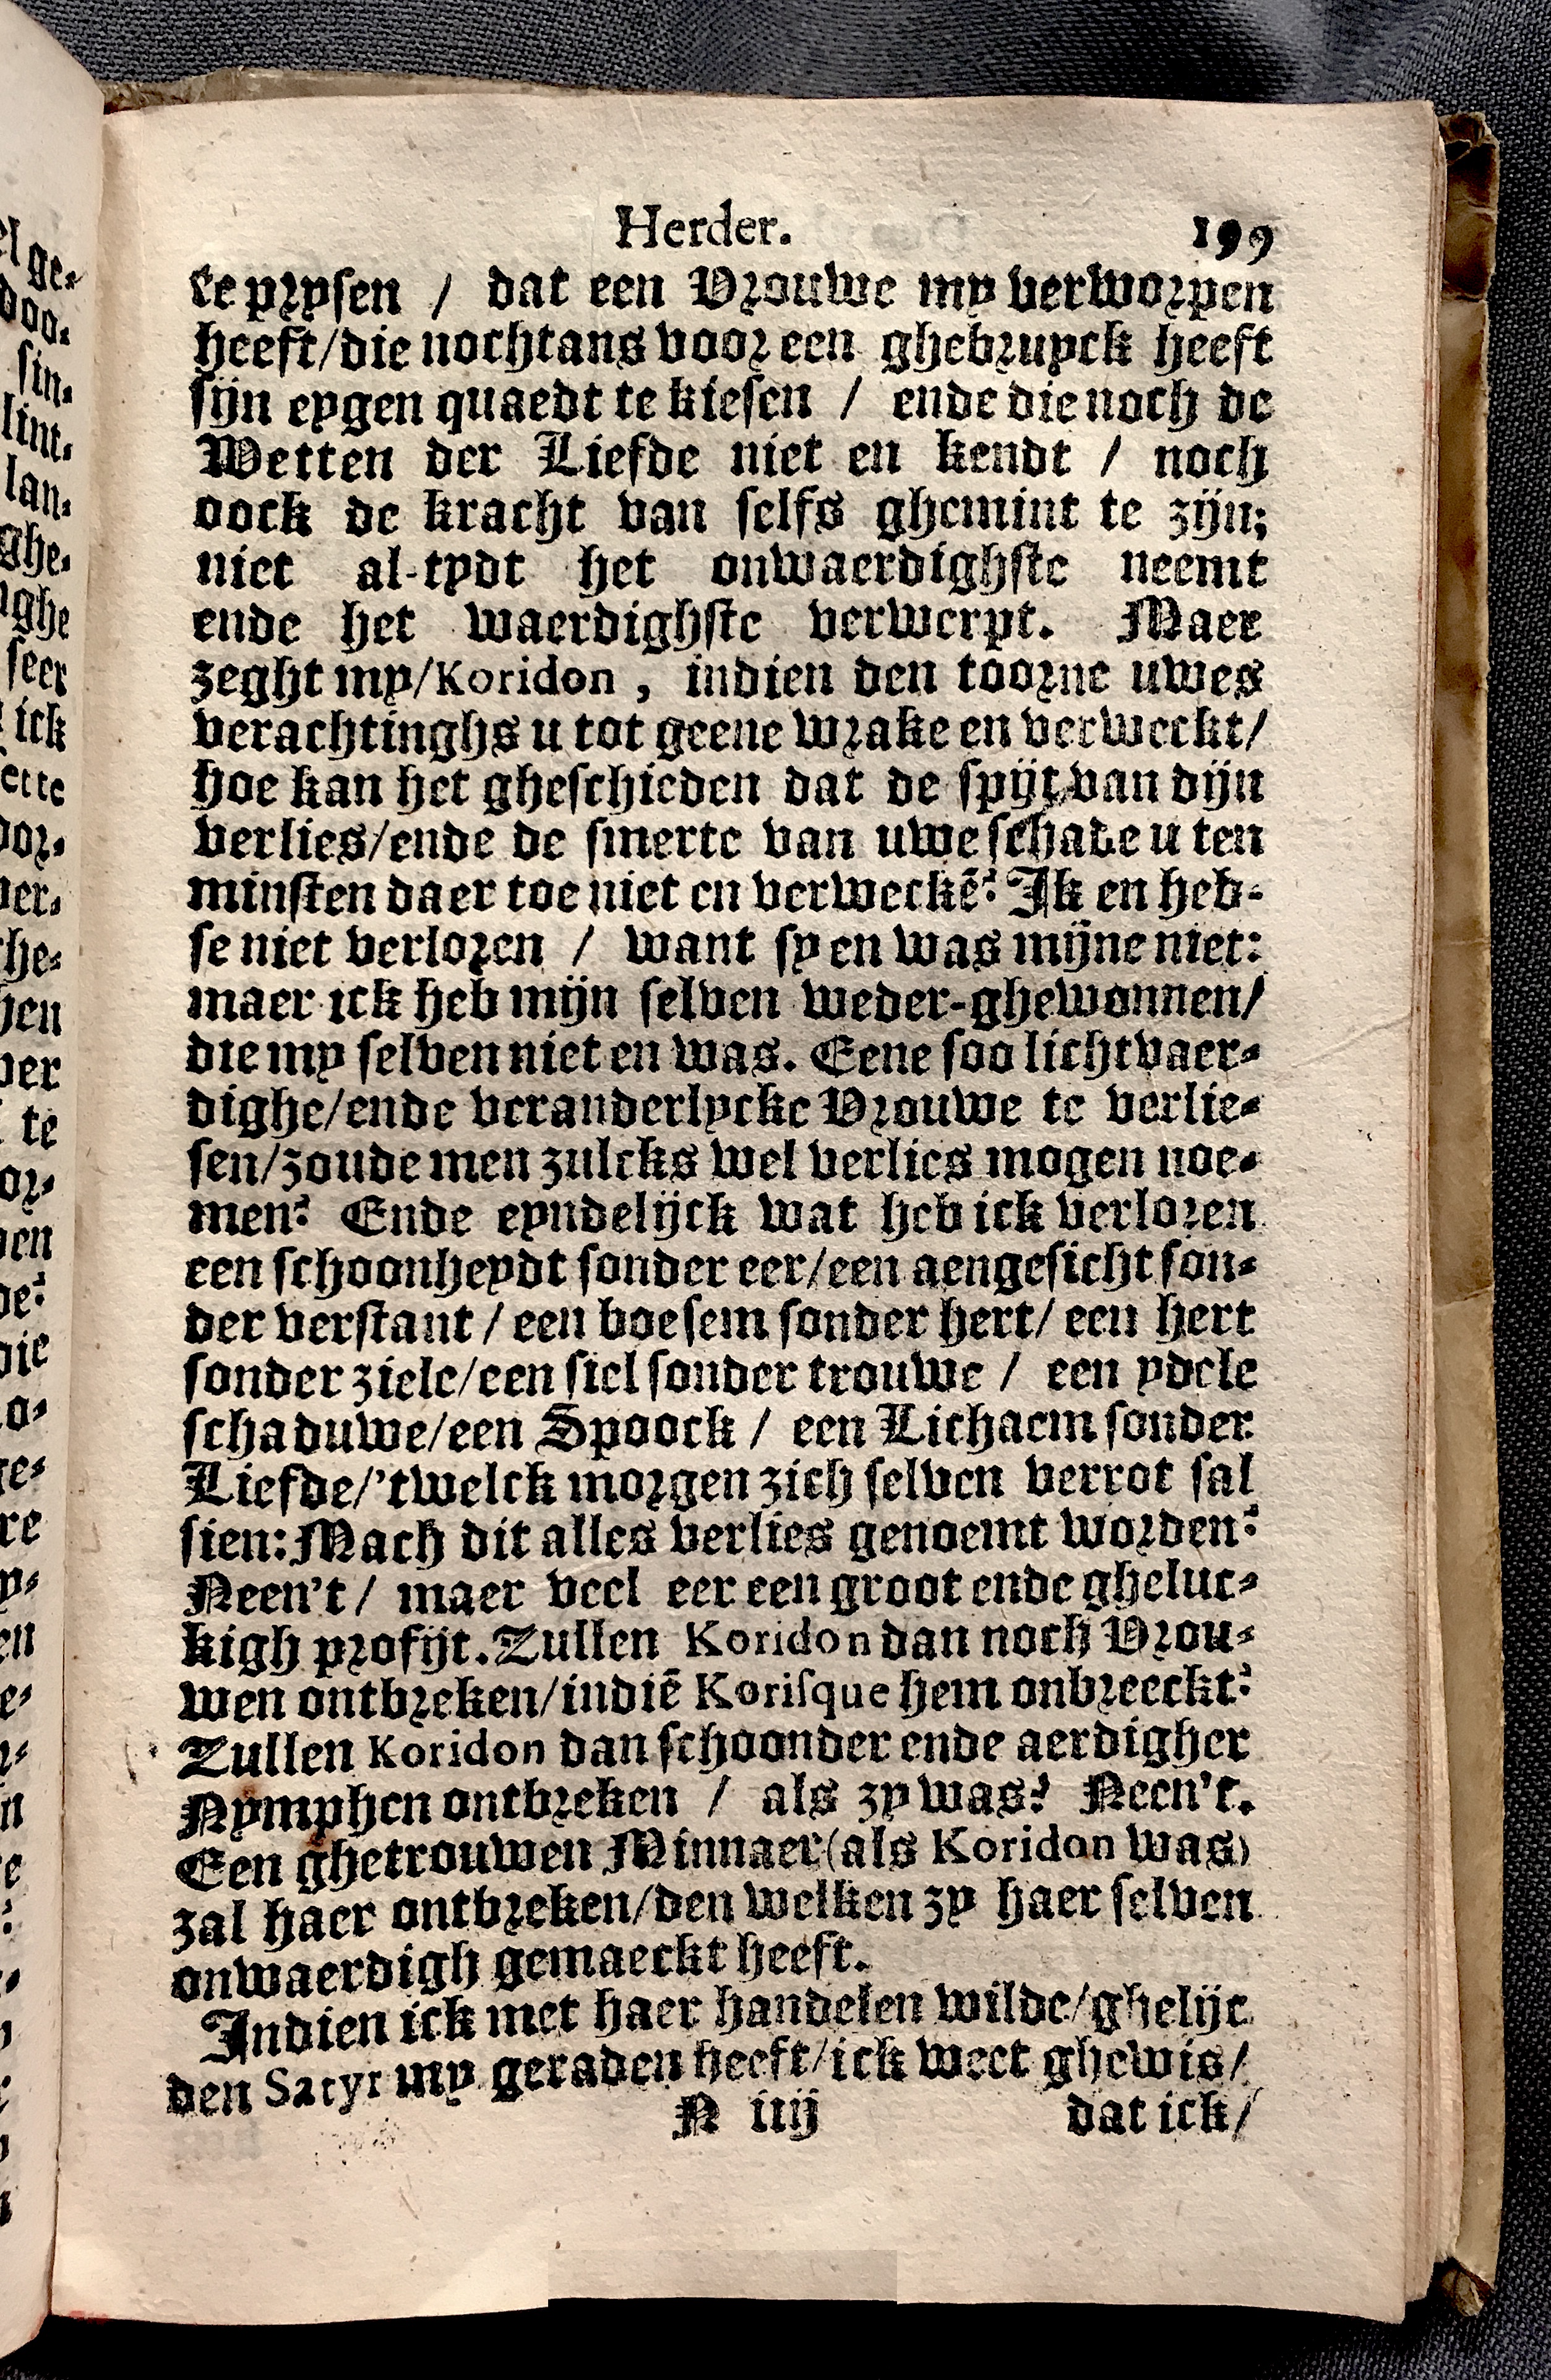 Herder. 199
te prysen / dat een Vrouwe my verworpen
heeft/die nochtans voor een ghebruyck heeft
sijn eygen quaedt te kiesen / ende die noch de
Wetten der Liefde niet en kendt / noch
oock de kracht van selfs ghemint te zijn;
niet al-tydt het onwaerdighste neemt
ende het waerdighste verwerpt. Maer
zeght my/Koridon, indien den toorne uwes
verachtinghs u tot geene wrake en verweckt/
hoe kan het gheschieden dat de spijt van dijn
verlies/ende de smerte van uwe schade u ten
minsten daer toe niet en verweckẽ? Ik en heb-
se niet verloren / want sy en was mijne niet:
maer ick heb mijn selven weder-ghewonnen/
die my selven niet en was. Eene soo lichtvaer-
dighe/ende veranderlycke Vrouwe te verlie-
sen/zoude men zulcks wel verlies mogen noe-
men? Ende eyndelijck wat heb ick verloren
een schoonheydt sonder eer/een aengesicht son-
der verstant / een boesem sonder hert/ een hert
sonder ziele/een siel sonder trouwe / een ydele
schaduwe/een Spoock / een Lichaem sonder
Liefde/'twelck morgen zich selven verrot sal
sien: Mach dit alles verlies genoemt worden?
Neen't / maer veel eer een groot ende gheluc-
kigh profijt. Zullen Koridon dan noch Vrou-
wen ontbreken/indiẽ Korisque hem onbreeckt?
Zullen Koridon dan schoonder ende aerdigher
Nymphen ontbreken / als zy was? Neen't.
Een ghetrouwen Minnaer (als Koridon was)
zal haer ontbreken/den welken zy haer selven
onwaerdigh gemaeckt heeft.
Indien ick met haer handelen wilde/ghelijc
den Satyr my geraden heeft/ick weet ghewis/
N iiij dat ick/
el ge-
doo-
sin-
lint-
lan-
ghe-
nghe
seer
ick
ette
oor-
ver-
che-
hen
ver
te
or-
en
de?
die
o-
ge-
re
y-
en
e-
n